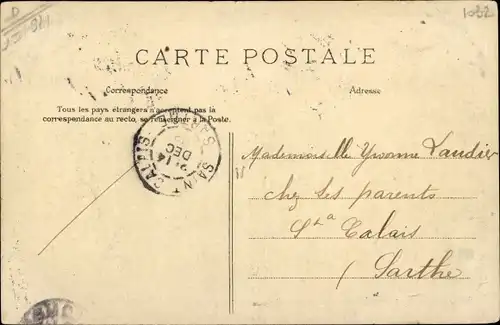 1032
CARTE POSTALE
Correspondance
Adresse
Tous les pays étrangers n'acceptent pas la
correspondance au recto, se renseigner à la Poste.
SAINT CALAIS
14
DEC
Mademoiselle Yvonne Vaudier
chez ses parents
St a Calais
(Sarthe